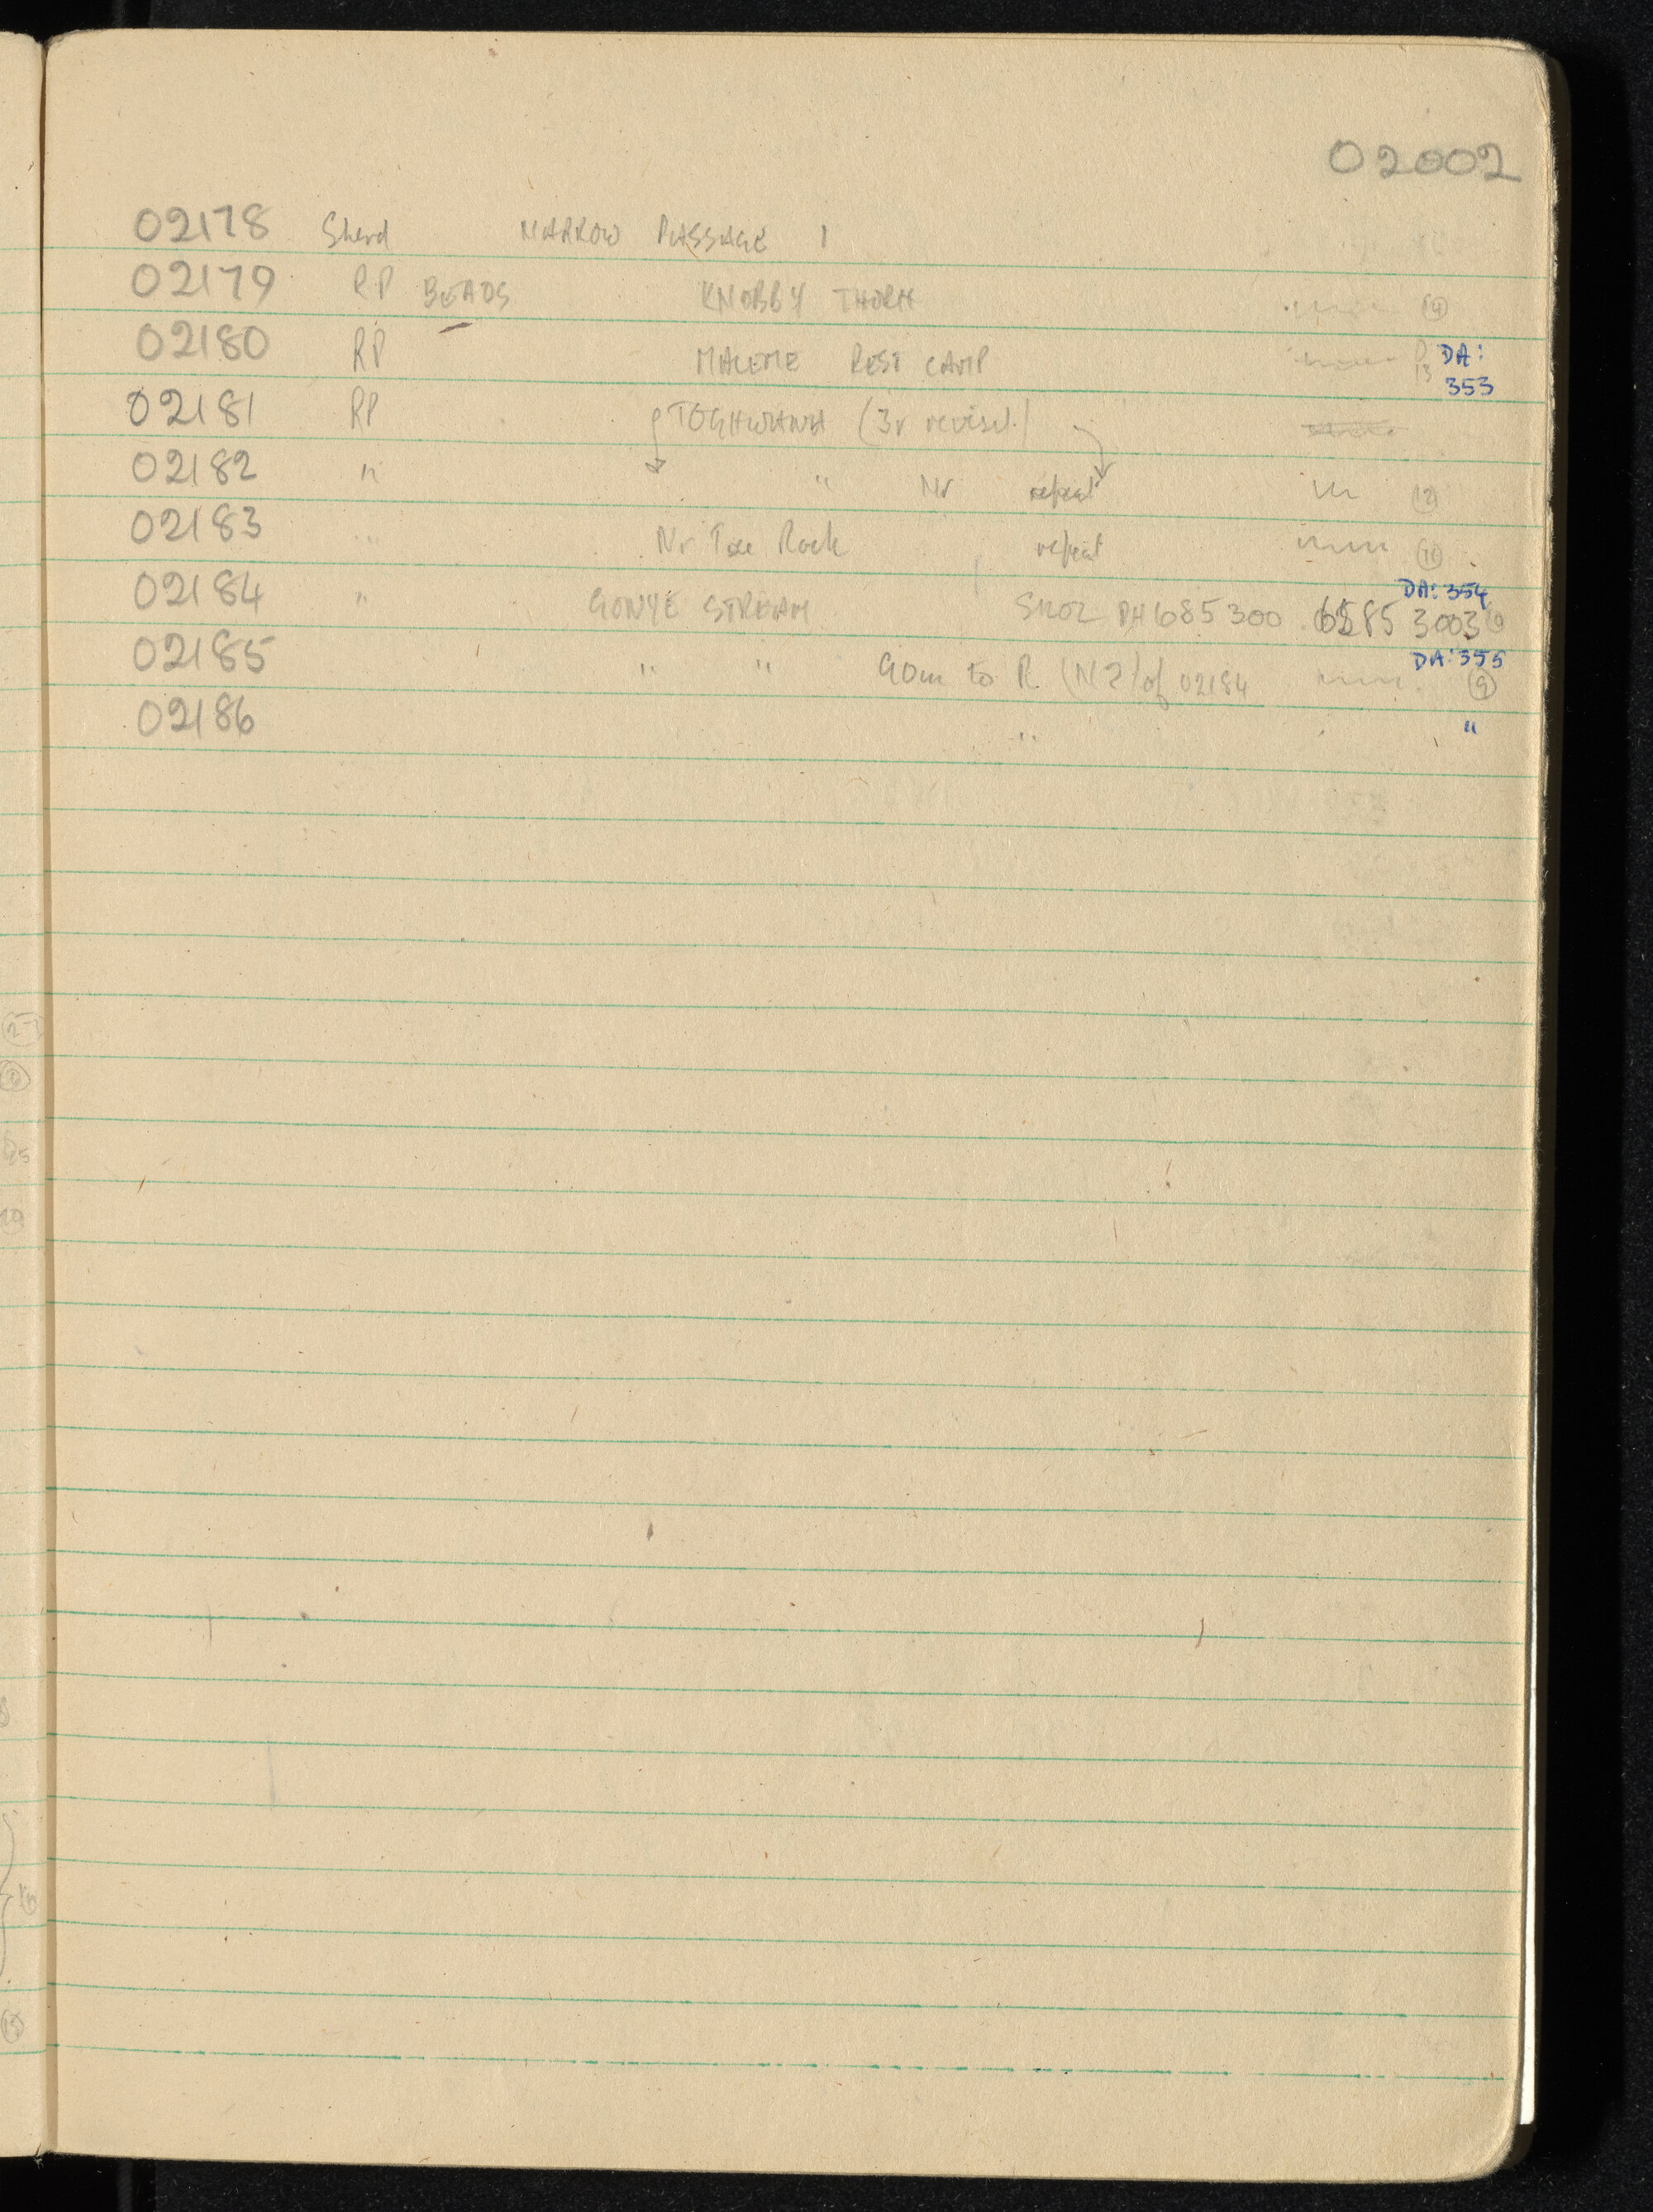 02002
02178 Sherd NARROW PASSAGE 1
02179 RP BEADS KNOBBY THORN
02180 RP MALEME REST CAMP DA: 353
02181 RP TOGHWANA (3r revised)
02182 " " Nr repeat (12)
02183 " Nr Rock repeat (11)
DA: 354
02184 " GONYE STREAM 085300 6285 3003
DA: 355
02185 " " 90m to R (N?) of 02184 (9)
02186 " "